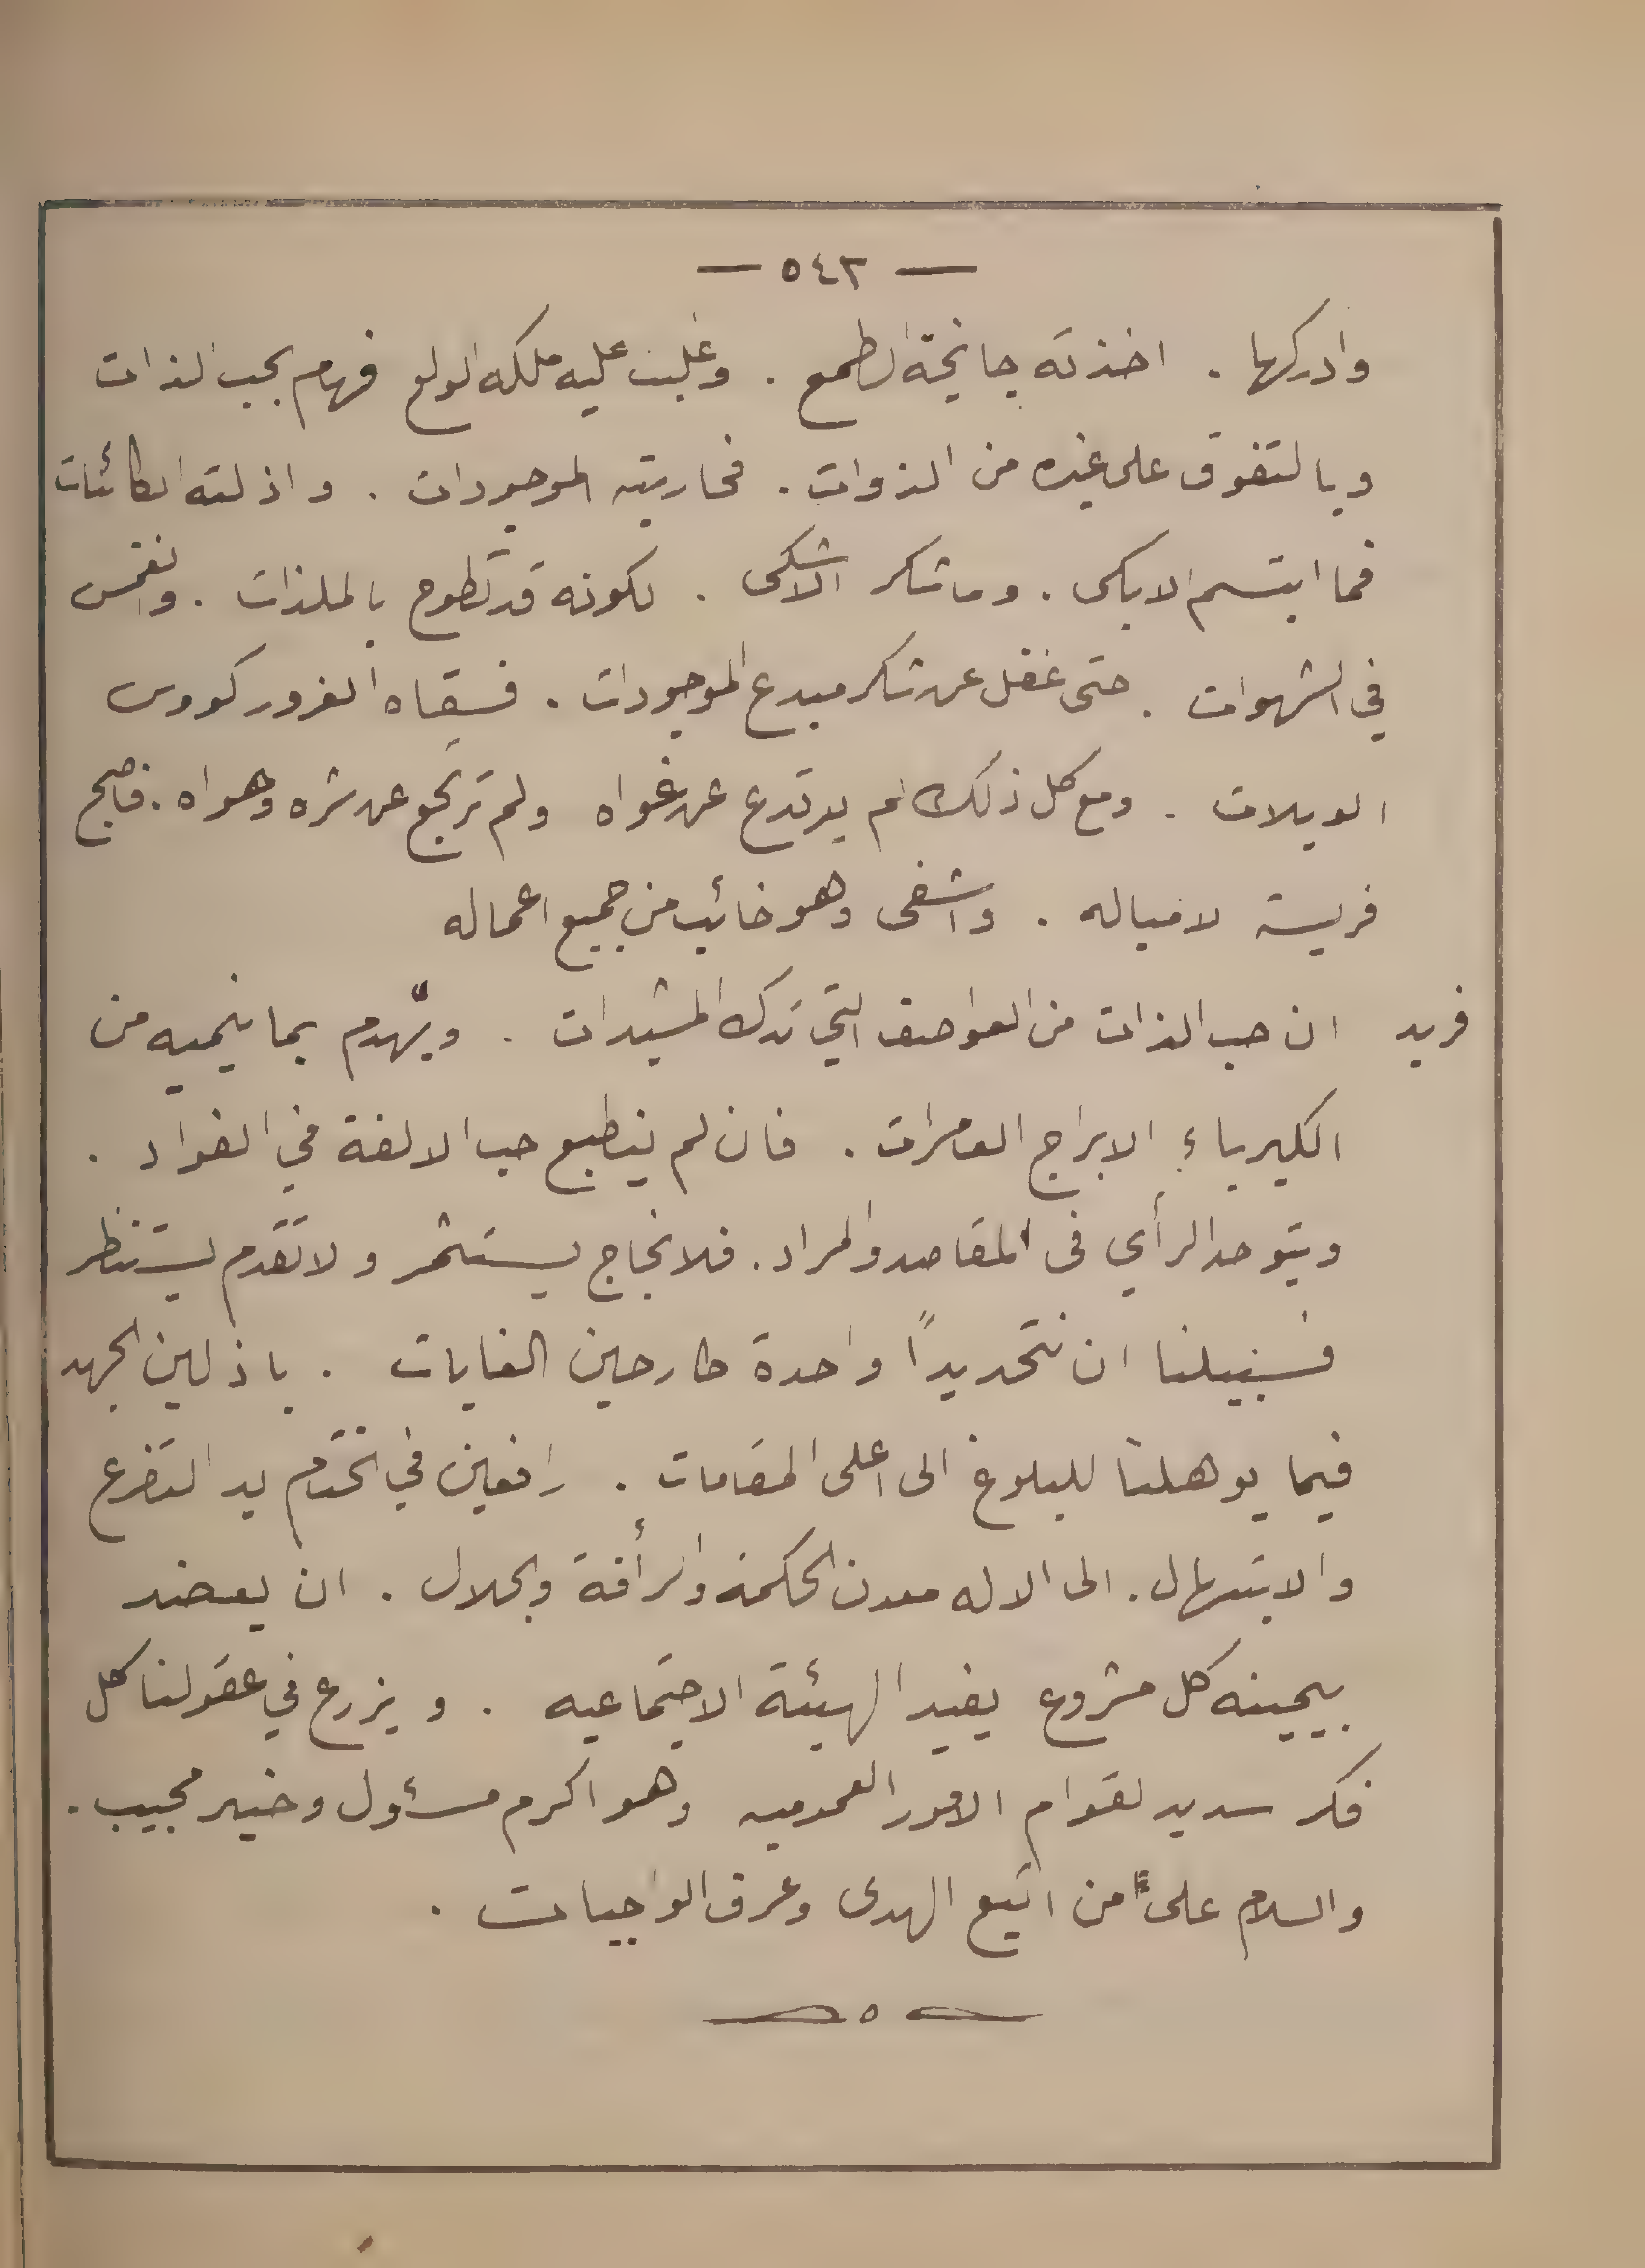 — ٥٤٢ —
وادركها . اخذته جانحة الطمع . وغلبت عليه ملكه الولع فهام بحب الذات
وبالتفوق على غيره من الذوات . فحاربته الموجودات . واذلته الكائنات
فما ابتسم الا بكى . وما شكر الا شكى . لكونه قد تطوح بالملذات . وانغمس
في الشهوات . حتى غفل عن شكر مبدع الموجودات . فسقاه الغرور كووس
الويلات . ومع كل ذلك لم يرتدع عن غواه ولم ترتجع عن شره وهواه . فاصبح
فريسة لامياله . واشفى وهو خائب من جميع اعماله
فريد ان حب الذات من العواصف التي تدك المشيدات . ويهدم بما ينميه من
الكبرياء الابراج العامرات . فان لم ينطبع حب الالفة في الفواد .
ويتوحد الرأي في المقاصد والمراد . فلا نجاح يستثمر ولا تقدم يستنظر
فسبيلنا ان نتحد يدًا واحدة طارحين الغايات . باذلين الجهد
فيما يوهلنا للبلوغ الى اعلى المقامات . رافعين في الختام يد التضرع
والابتهال . الى الاله معدن الحكمة والرأفة والجلال . ان يعضد
بيمينه كل مشروع يفيد الهيئة الاجتماعيه . ويزرع في عقولنا كل
فكر سديد لقوام الامور العموميه وهو اكرم مسؤول وخير مجيب .
والسلام على من اتبع الهدى وعرف الواجبات .